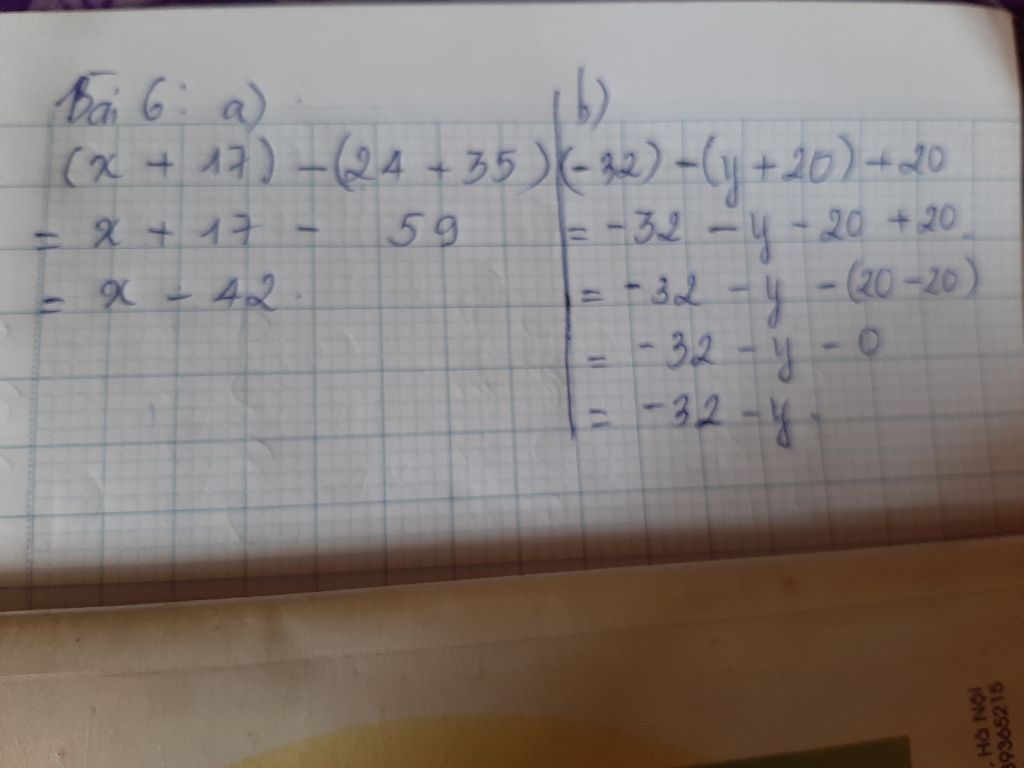 Bài 6: a)
(x + 17) - (24 + 35)
= x + 17 - 59
= x - 42.
b)
(-32) - (y + 20) + 20
= -32 - y - 20 + 20.
= -32 - y - (20 - 20)
= -32 - y - 0
= -32 - y.
, HÀ NỘI
39365215